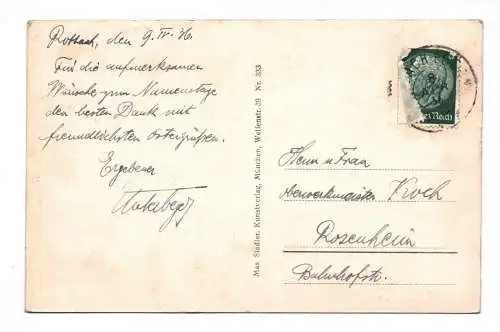 Rottach, den 9. IV. 36.
Für die aufmerksamen
Wünsche zum Namenstage
den besten Dank mit
freundlichsten Ostergrüßen.
Ergebener
Max Stadler, Kunstverlag, München, Welfenstr. 39 Nr. 333
Deutsches Reich
Herrn u Frau
Oberwerkmeister Koch
Rosenheim
Bahnhofstr.